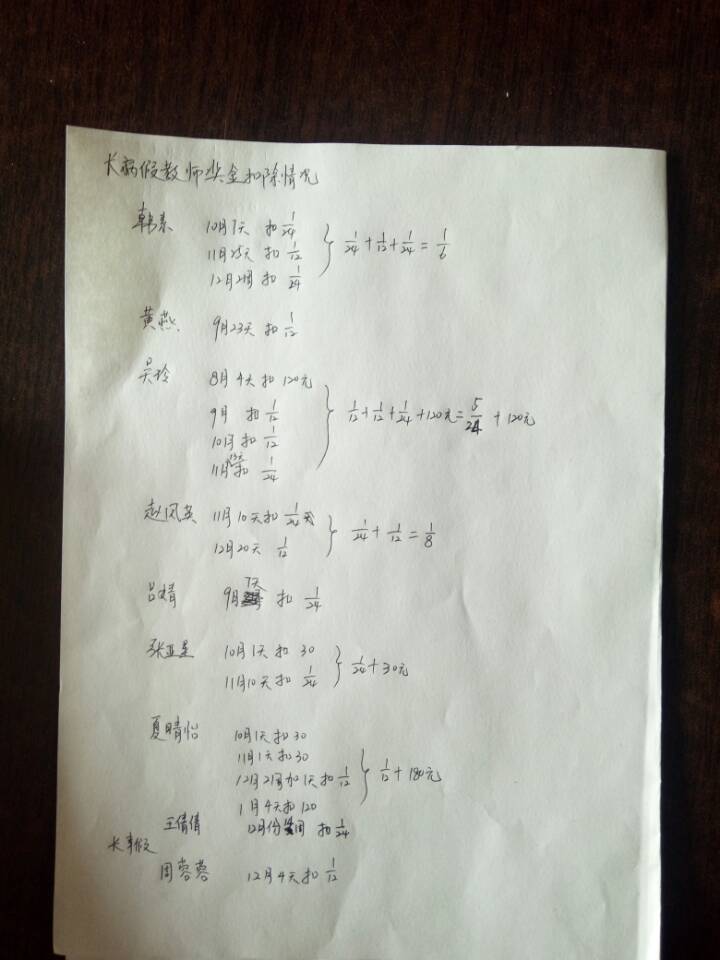 长病假教师奖金扣除情况
韩素 10月7天 扣 1/24
11月25天 扣 1/12
12月2周 扣 1/24
} 1/24 + 1/12 + 1/24 = 1/6
黄燕 9月23天 扣 1/12
吴玲 8月4天扣120元
9月 扣 1/12
10月 扣 1/12
11月 扣 1/24
} 1/12 + 1/12 + 1/24 + 120元 = 5/24 + 120元
赵凤英 11月10天扣 1/24
12月20天 1/12
} 1/24 + 1/12 = 1/8
吕婧 9月7天 扣 1/24
张亚星 10月1天扣 30
11月10天扣 1/24
} 1/24 + 30元
夏晴怡 10月1天扣30
11月1天扣30
12月2周加1天扣 1/12
1月4天扣120
} 1/12 + 180元
王倩倩 12月份 周 扣 1/24
长事假
周蓉蓉 12月4天扣 1/12